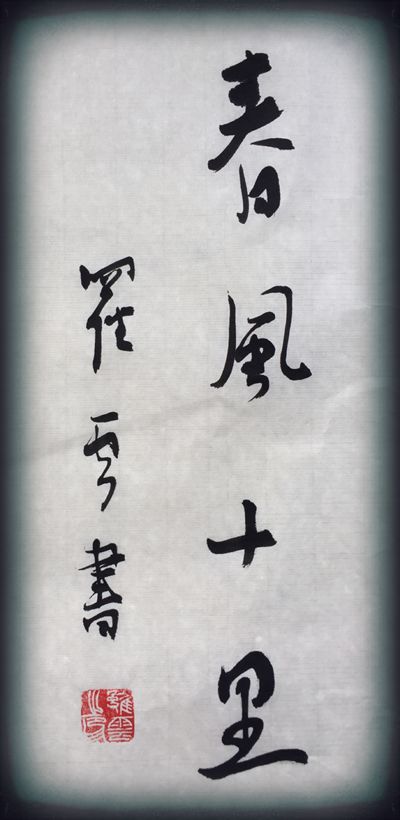 春風十里
羅雲書